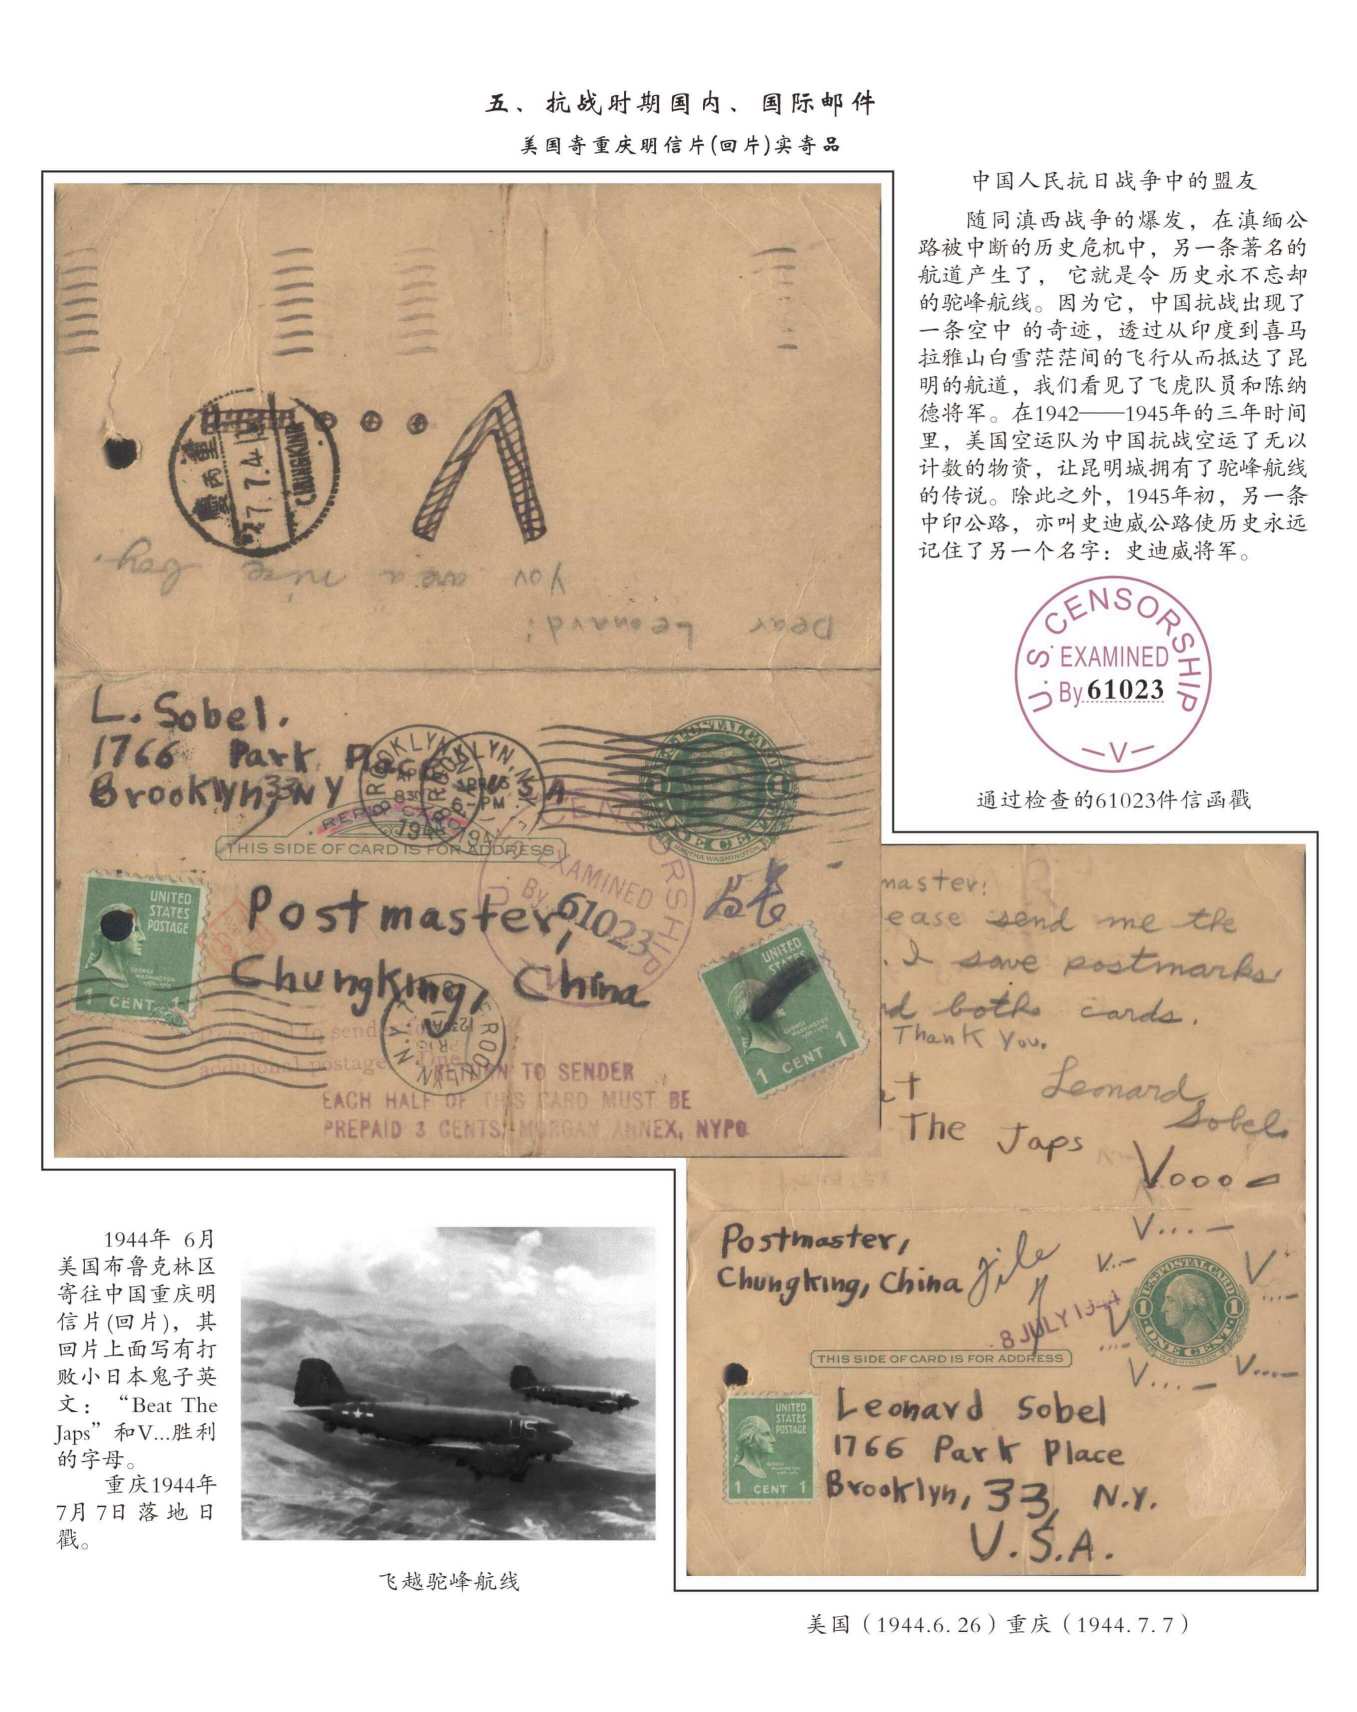 五、抗战时期国内、国际邮件
美国寄重庆明信片(回片)实寄品
中国人民抗日战争中的盟友
随同滇西战争的爆发，在滇缅公
路被中断的历史危机中，另一条著名的
航道产生了， 它就是令 历史永不忘却
的驼峰航线。因为它，中国抗战出现了
一条空中 的奇迹，透过从印度到喜马
拉雅山白雪茫茫间的飞行从而抵达了昆
明的航道，我们看见了飞虎队员和陈纳
德将军。在1942——1945年的三年时间
里，美国空运队为中国抗战空运了无以
计数的物资，让昆明城拥有了驼峰航线
的传说。除此之外，1945年初，另一条
中印公路，亦叫史迪威公路使历史永远
记住了另一个名字：史迪威将军。
U.S. CENSORSHIP
EXAMINED
By 61023
V
通过检查的61023件信函戳
CHUNGKING
Dear Leonard:
You are a nice boy.
L. Sobel.
1766 Park Place
Brooklyn, 33 NY U S A
BROOKLYN, N.Y.
THIS SIDE OF CARD IS FOR ADDRESS
U.S. CENSORSHIP
EXAMINED
By 61023
UNITED
STATES
POSTAGE
1 CENT 1
Postmaster,
Chungking, China
UNITED
1 CENT 1
RETURN TO SENDER
EACH HALF OF THIS CARD MUST BE
PREPAID 3 CENTS, MORGAN ANNEX, NYPO
master:
ease send me the
. I save postmarks
d both cards.
Thank You.
Leonard
Sobel
The Japs
V...—
Postmaster,
Chungking, China
file
8 JULY 1944
U.S. POSTAL CARD
1 ONE CENT 1
THIS SIDE OF CARD IS FOR ADDRESS
UNITED
STATES
POSTAGE
1 CENT 1
Leonard Sobel
1766 Park Place
Brooklyn, 33, N.Y.
U.S.A.
1944年 6月
美国布鲁克林区
寄往中国重庆明
信片(回片)，其
回片上面写有打
败小日本鬼子英
文：“Beat The
Japs”和V...胜利
的字母。
重庆1944年
7月7日落地日
戳。
飞越驼峰航线
美国（1944.6.26）重庆（1944.7.7）